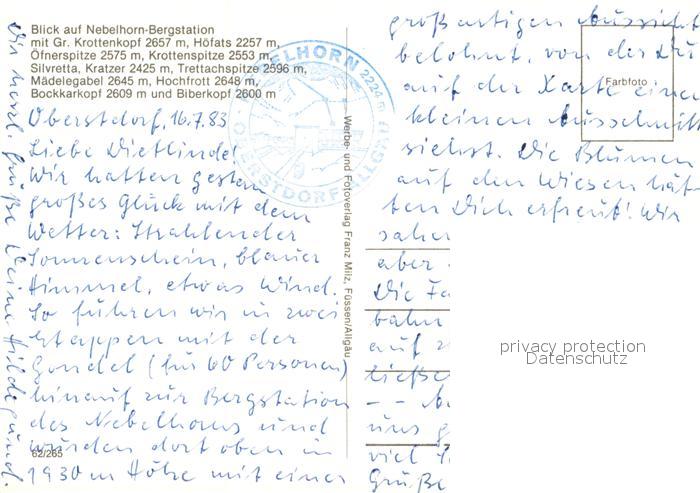 Blick auf Nebelhorn-Bergstation
mit Gr. Krottenkopf 2657 m, Höfats 2257 m,
Öfnerspitze 2575 m, Krottenspitze 2553 m,
Silvretta, Kratzer 2425 m, Trettachspitze 2596 m,
Mädelegabel 2645 m, Hochfrott 2648 m,
Bockkarkopf 2609 m und Biberkopf 2600 m
NEBELHORN 2224 m
OBERSTDORF/ALLGÄU
Oberstdorf, 16.7.83
Liebe Dietlinde!
Wir hatten gestern
großes Glück mit dem
Wetter: Strahlender
Sonnenschein, blauer
Himmel, etwas Wind.
So fuhren wir in zwei
Etappen mit der
Gondel (für 60 Personen)
hinauf zur Bergstation
des Nebelhorns und
wurden dort oben in
1930 m Höhe mit einer
62/265
Werbe- und Fotoverlag Franz Milz, Füssen/Allgäu
großartigen Aussicht
belohnt, von der Du
auf der Karte einen
kleinen Ausschnitt
siehst. Die Blumen
auf den Wiesen hät-
ten Dich erfreut! Wir
sahen
aber
Die
bahn
auf
ließe
uns
viel
Grüße
Farbfoto
privacy protection
Datenschutz
Grüße Deine Hildegund.